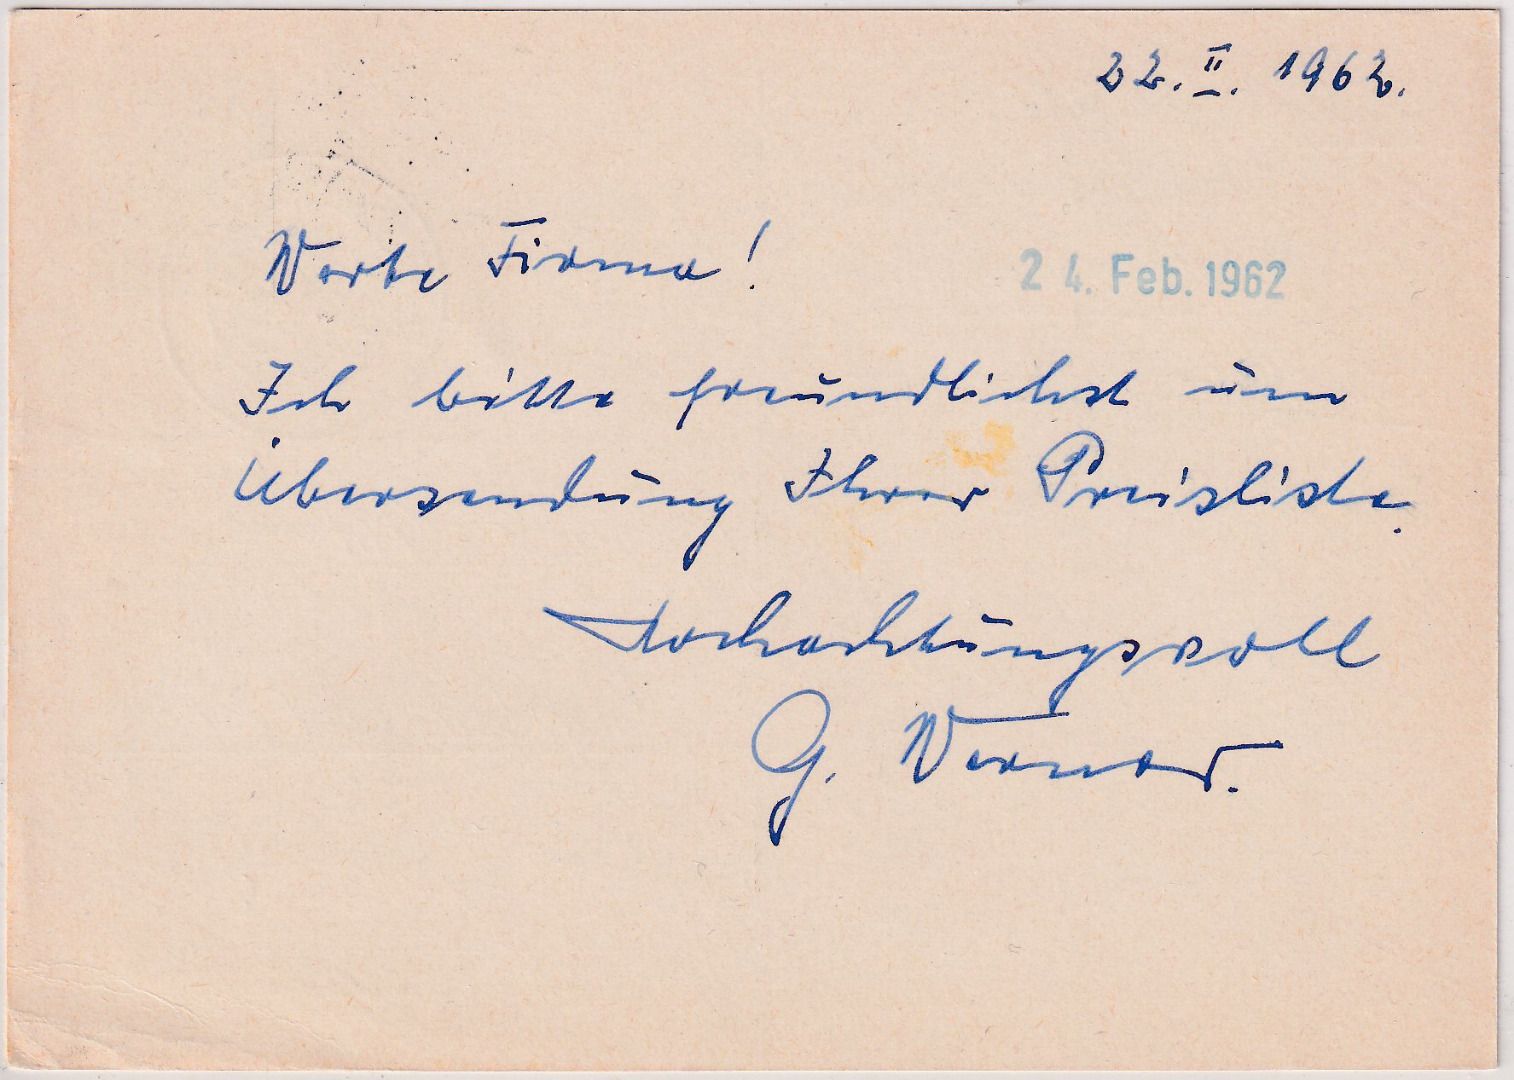 22. II. 1962.
Werte Firma!
24. Feb. 1962
Ich bitte freundlichst um
Übersendung Ihrer Preisliste.
Hochachtungsvoll
G. Werner.